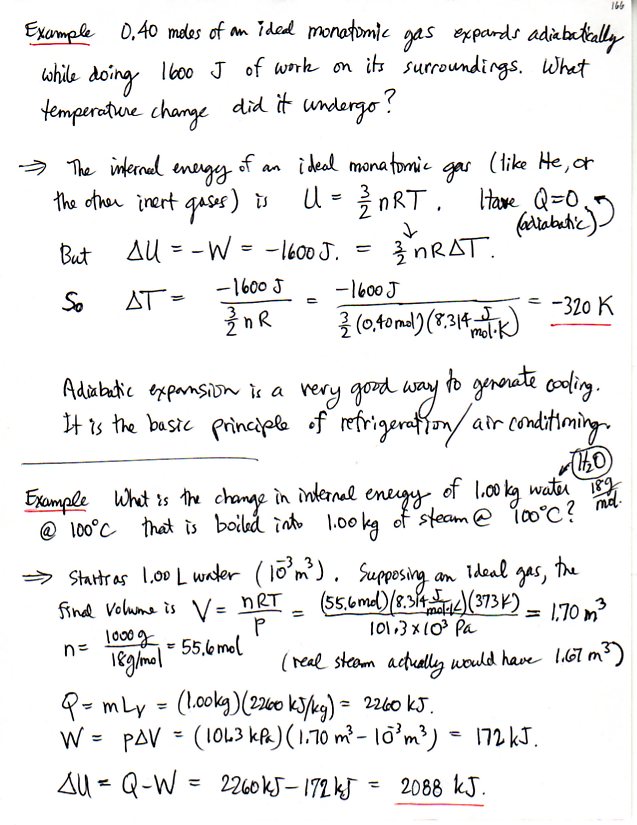 166
Example 0.40 moles of an ideal monatomic gas expands adiabatically
while doing 1600 J of work on its surroundings. What
temperature change did it undergo?
⇒ The internal energy of an ideal monatomic gas (like He, or
the other inert gases) is U = 3/2 nRT. Have Q=0
(adiabatic)
But ΔU = -W = -1600 J. = 3/2 nRΔT.
So ΔT = -1600 J / (3/2 nR) = -1600 J / (3/2 (0.40 mol)(8.314 J/mol·K)) = -320 K
Adiabatic expansion is a very good way to generate cooling.
It is the basic principle of refrigeration/air conditioning.
H2O
Example What is the change in internal energy of 1.00 kg water 18g/mol.
@ 100°C that is boiled into 1.00 kg of steam @ 100°C?
⇒ Starts as 1.00 L water (10^-3 m^3). Supposing an ideal gas, the
final volume is V = nRT/P = (55.6 mol)(8.314 J/mol·K)(373 K) / 101.3 × 10^3 Pa = 1.70 m^3
n = 1000 g / 18 g/mol = 55.6 mol
(real steam actually would have 1.67 m^3)
Q = mLv = (1.00 kg)(2260 kJ/kg) = 2260 kJ.
W = pΔV = (101.3 kPa)(1.70 m^3 - 10^-3 m^3) = 172 kJ.
ΔU = Q-W = 2260 kJ - 172 kJ = 2088 kJ.